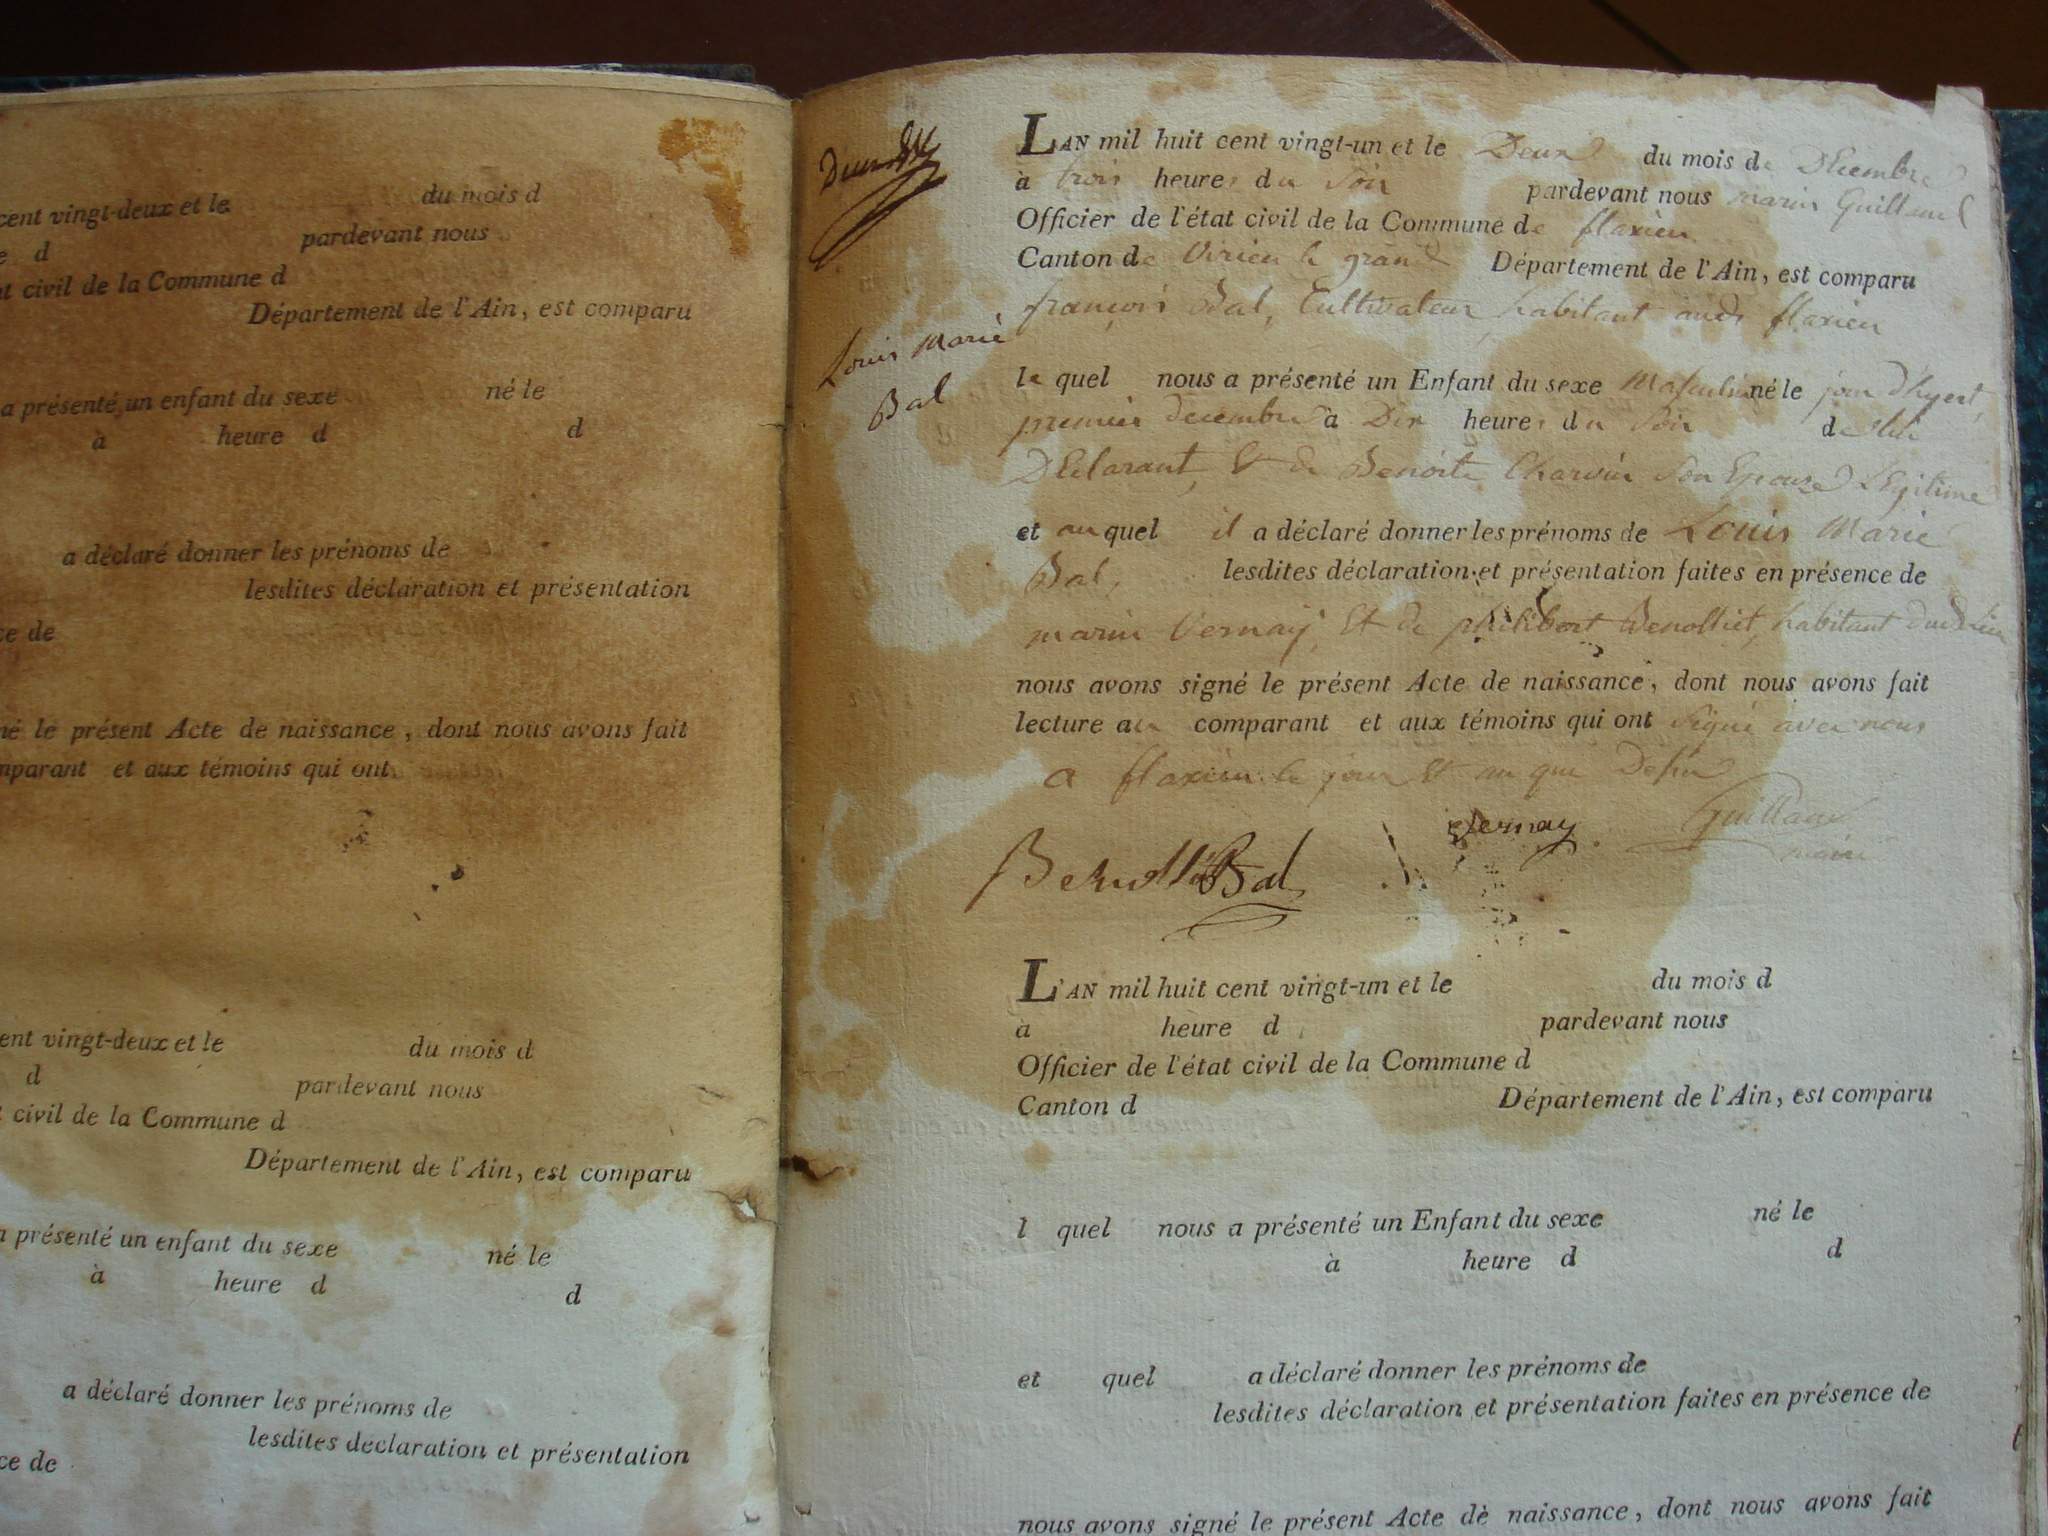 cent vingt-deux et le du mois d
e d pardevant nous
t civil de la Commune d
Département de l'Ain, est comparu
a présenté un enfant du sexe né le
à heure d d
a déclaré donner les prénoms de
lesdites déclaration et présentation
ce de
né le présent Acte de naissance, dont nous avons fait
mparant et aux témoins qui ont
ent vingt-deux et le du mois d
d pardevant nous
t civil de la Commune d
Département de l'Ain, est comparu
a présenté un enfant du sexe né le
à heure d d
a déclaré donner les prénoms de
lesdites déclaration et présentation
ce de
Louis Marie
Bal
L'AN mil huit cent vingt-un et le Deux du mois de DEcembre
à trois heures du Soir pardevant nous marin Guilland
Officier de l'état civil de la Commune de flaxieu
Canton de Virieu le grand Département de l'Ain, est comparu
françois Bal, Cultivateur, habitant audt flaxieu
le quel nous a présenté un Enfant du sexe Masculin né le jour d'hyert,
premier decembre à Dix heures du Soir de lui
DEclarant, Et de Benoite Charvin Son Epouse LEgitime
et auquel il a déclaré donner les prénoms de Louis Marie
Bal, lesdites déclaration et présentation faites en présence de
marin Vernay, Et de philibert Benolliet, habitant
nous avons signé le présent Acte de naissance, dont nous avons fait
lecture au comparant et aux témoins qui ont Signé avec nous
a flaxieu le jour Et an que Desus
Bal Vernay Guilland
maire
L'AN mil huit cent vingt-un et le du mois d
à heure d pardevant nous
Officier de l'état civil de la Commune d
Canton d Département de l'Ain, est comparu
l quel nous a présenté un Enfant du sexe né le
à heure d d
et quel a déclaré donner les prénoms de
lesdites déclaration et présentation faites en présence de
nous avons signé le présent Acte de naissance, dont nous avons fait